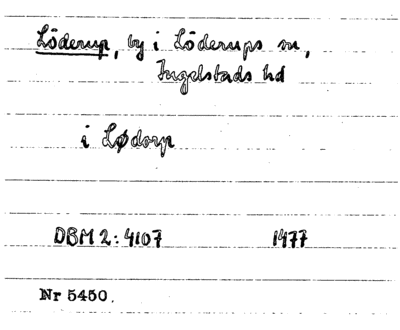 Löderup, by i Löderups sn,
Ingelstads hd
i Lødorp
DBM 2: 4107 1477
Nr 5450.